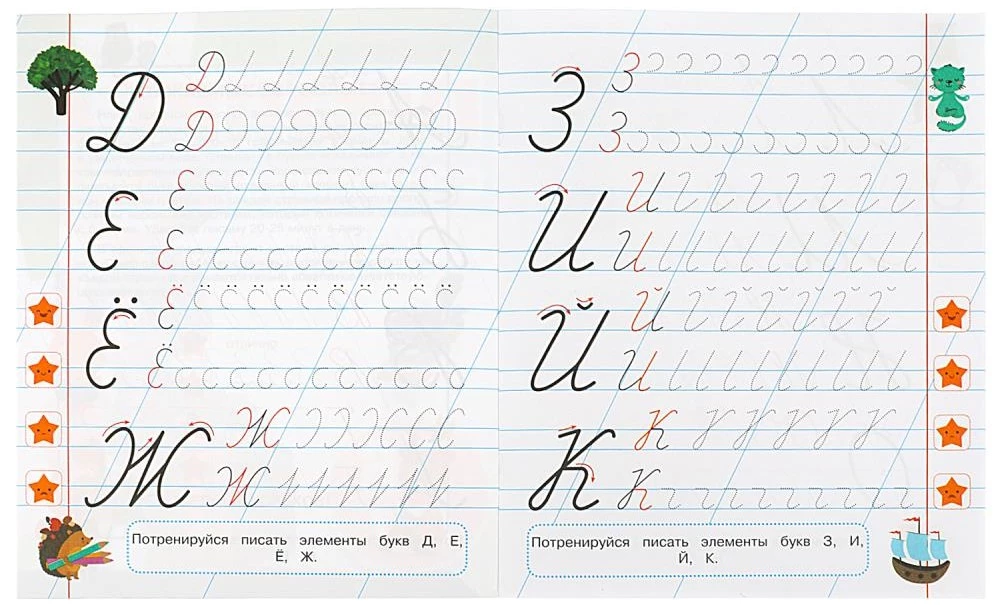 Д Д
Д
Е Е
Е
Ё Ё
Ё
Ж Ж
Ж
Потренируйся писать элементы букв Д, Е,
Ё, Ж.
З З
З
И И
И
Й Й
И
К К
К
Потренируйся писать элементы букв З, И,
Й, К.